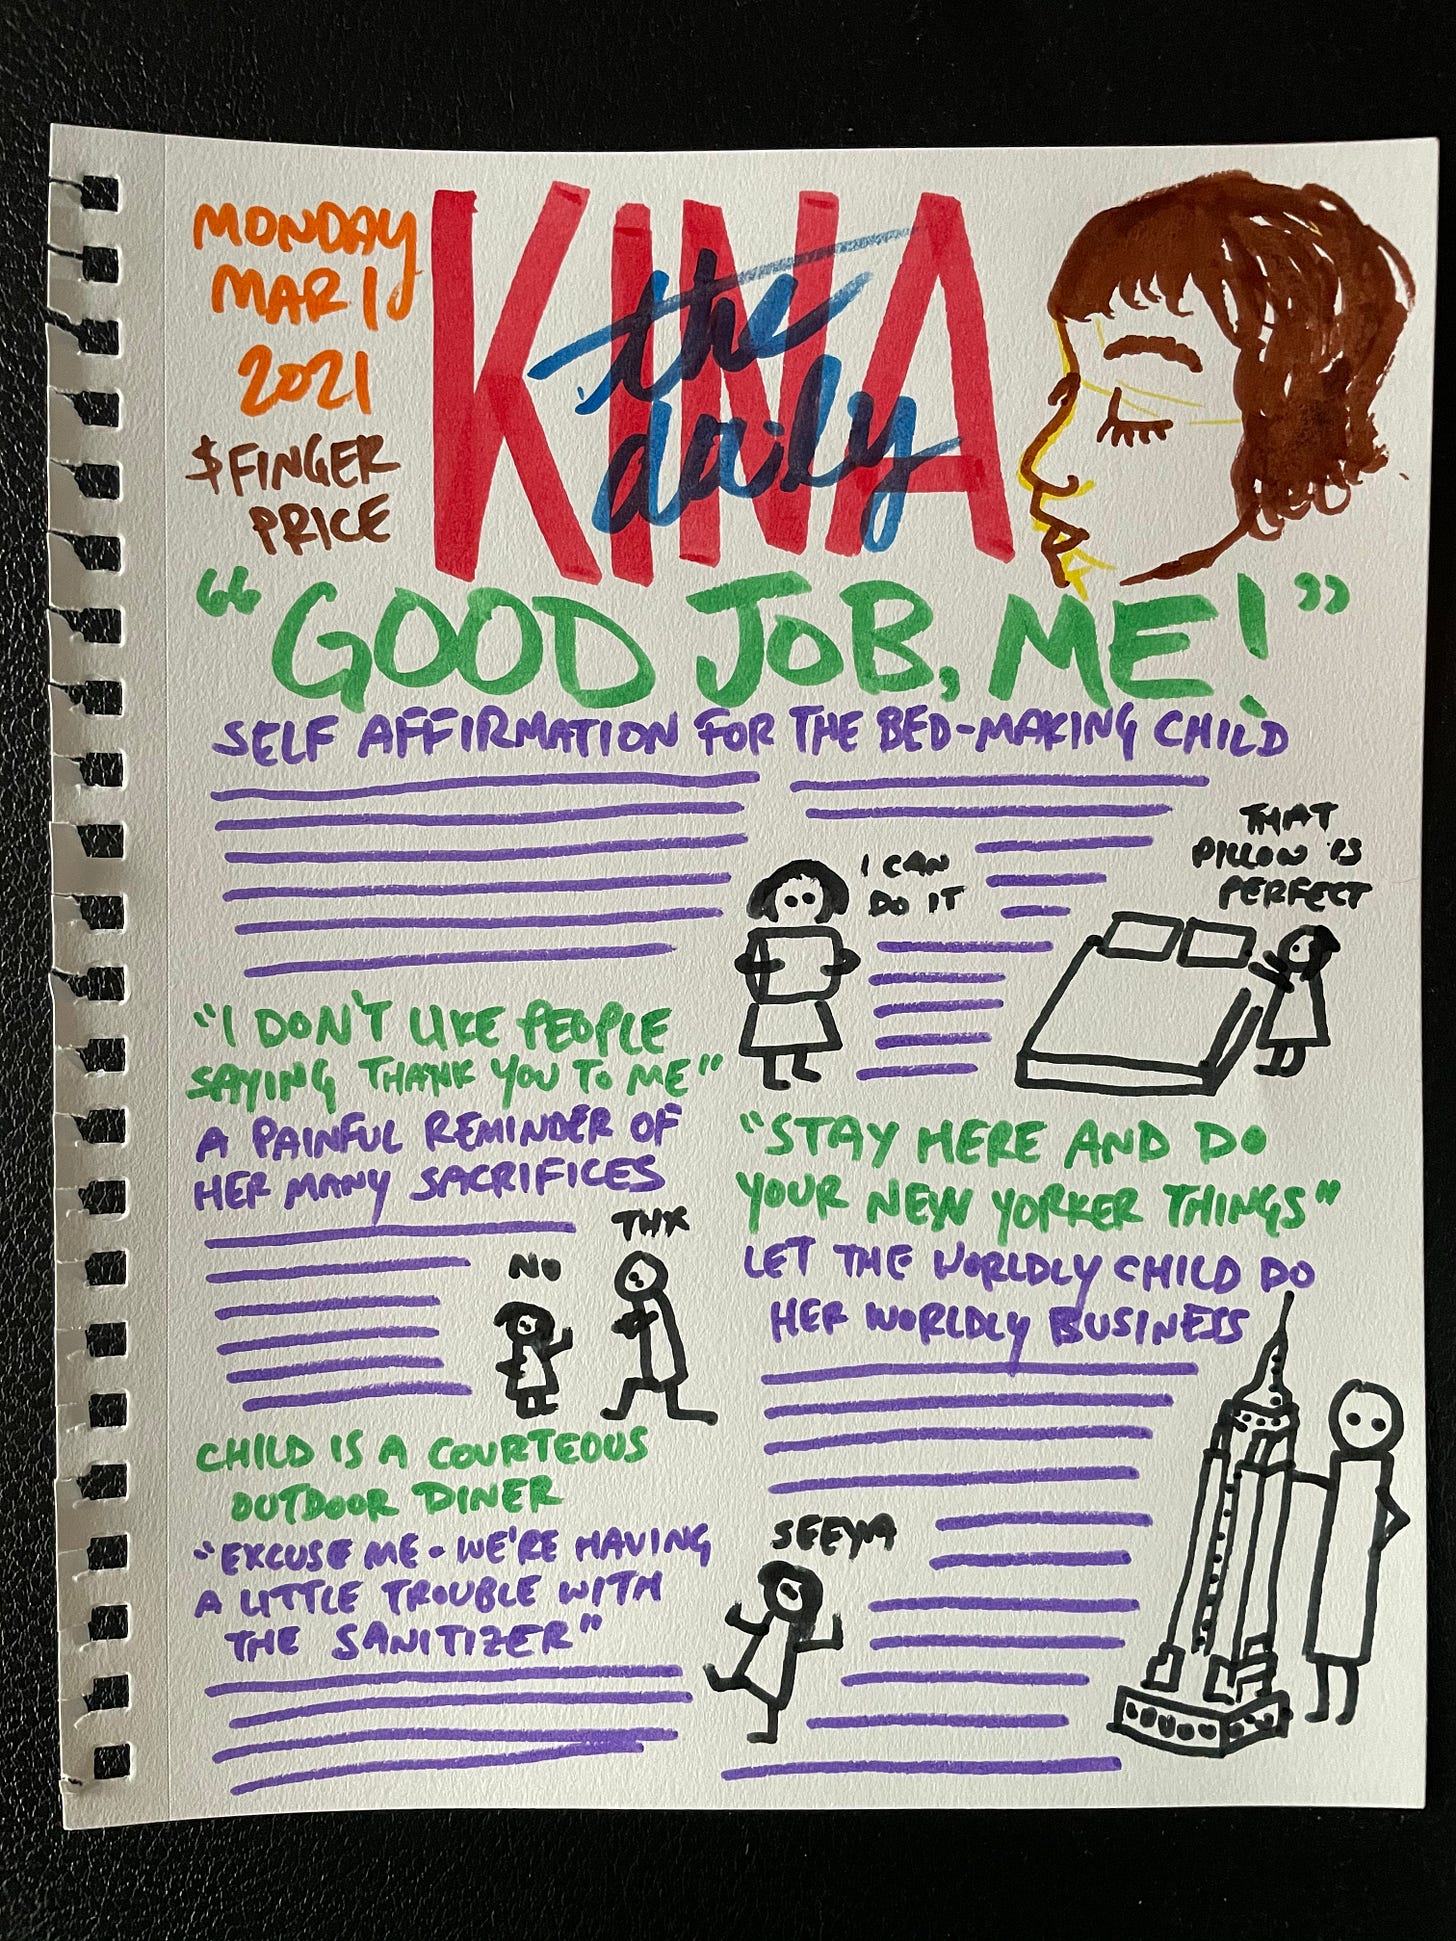 MONDAY
MAR 1
2021
$FINGER
PRICE
KINA
the
daily
"GOOD JOB, ME!"
SELF AFFIRMATION FOR THE BED-MAKING CHILD
I CAN
DO IT
THAT
PILLOW IS
PERFECT
"I DON'T LIKE PEOPLE
SAYING THANK YOU TO ME"
A PAINFUL REMINDER OF
HER MANY SACRIFICES
THX
NO
CHILD IS A COURTEOUS
OUTDOOR DINER
"EXCUSE ME - WE'RE HAVING
A LITTLE TROUBLE WITH
THE SANITIZER"
"STAY HERE AND DO
YOUR NEW YORKER THINGS"
LET THE WORLDLY CHILD DO
HER WORLDLY BUSINESS
SEEYA